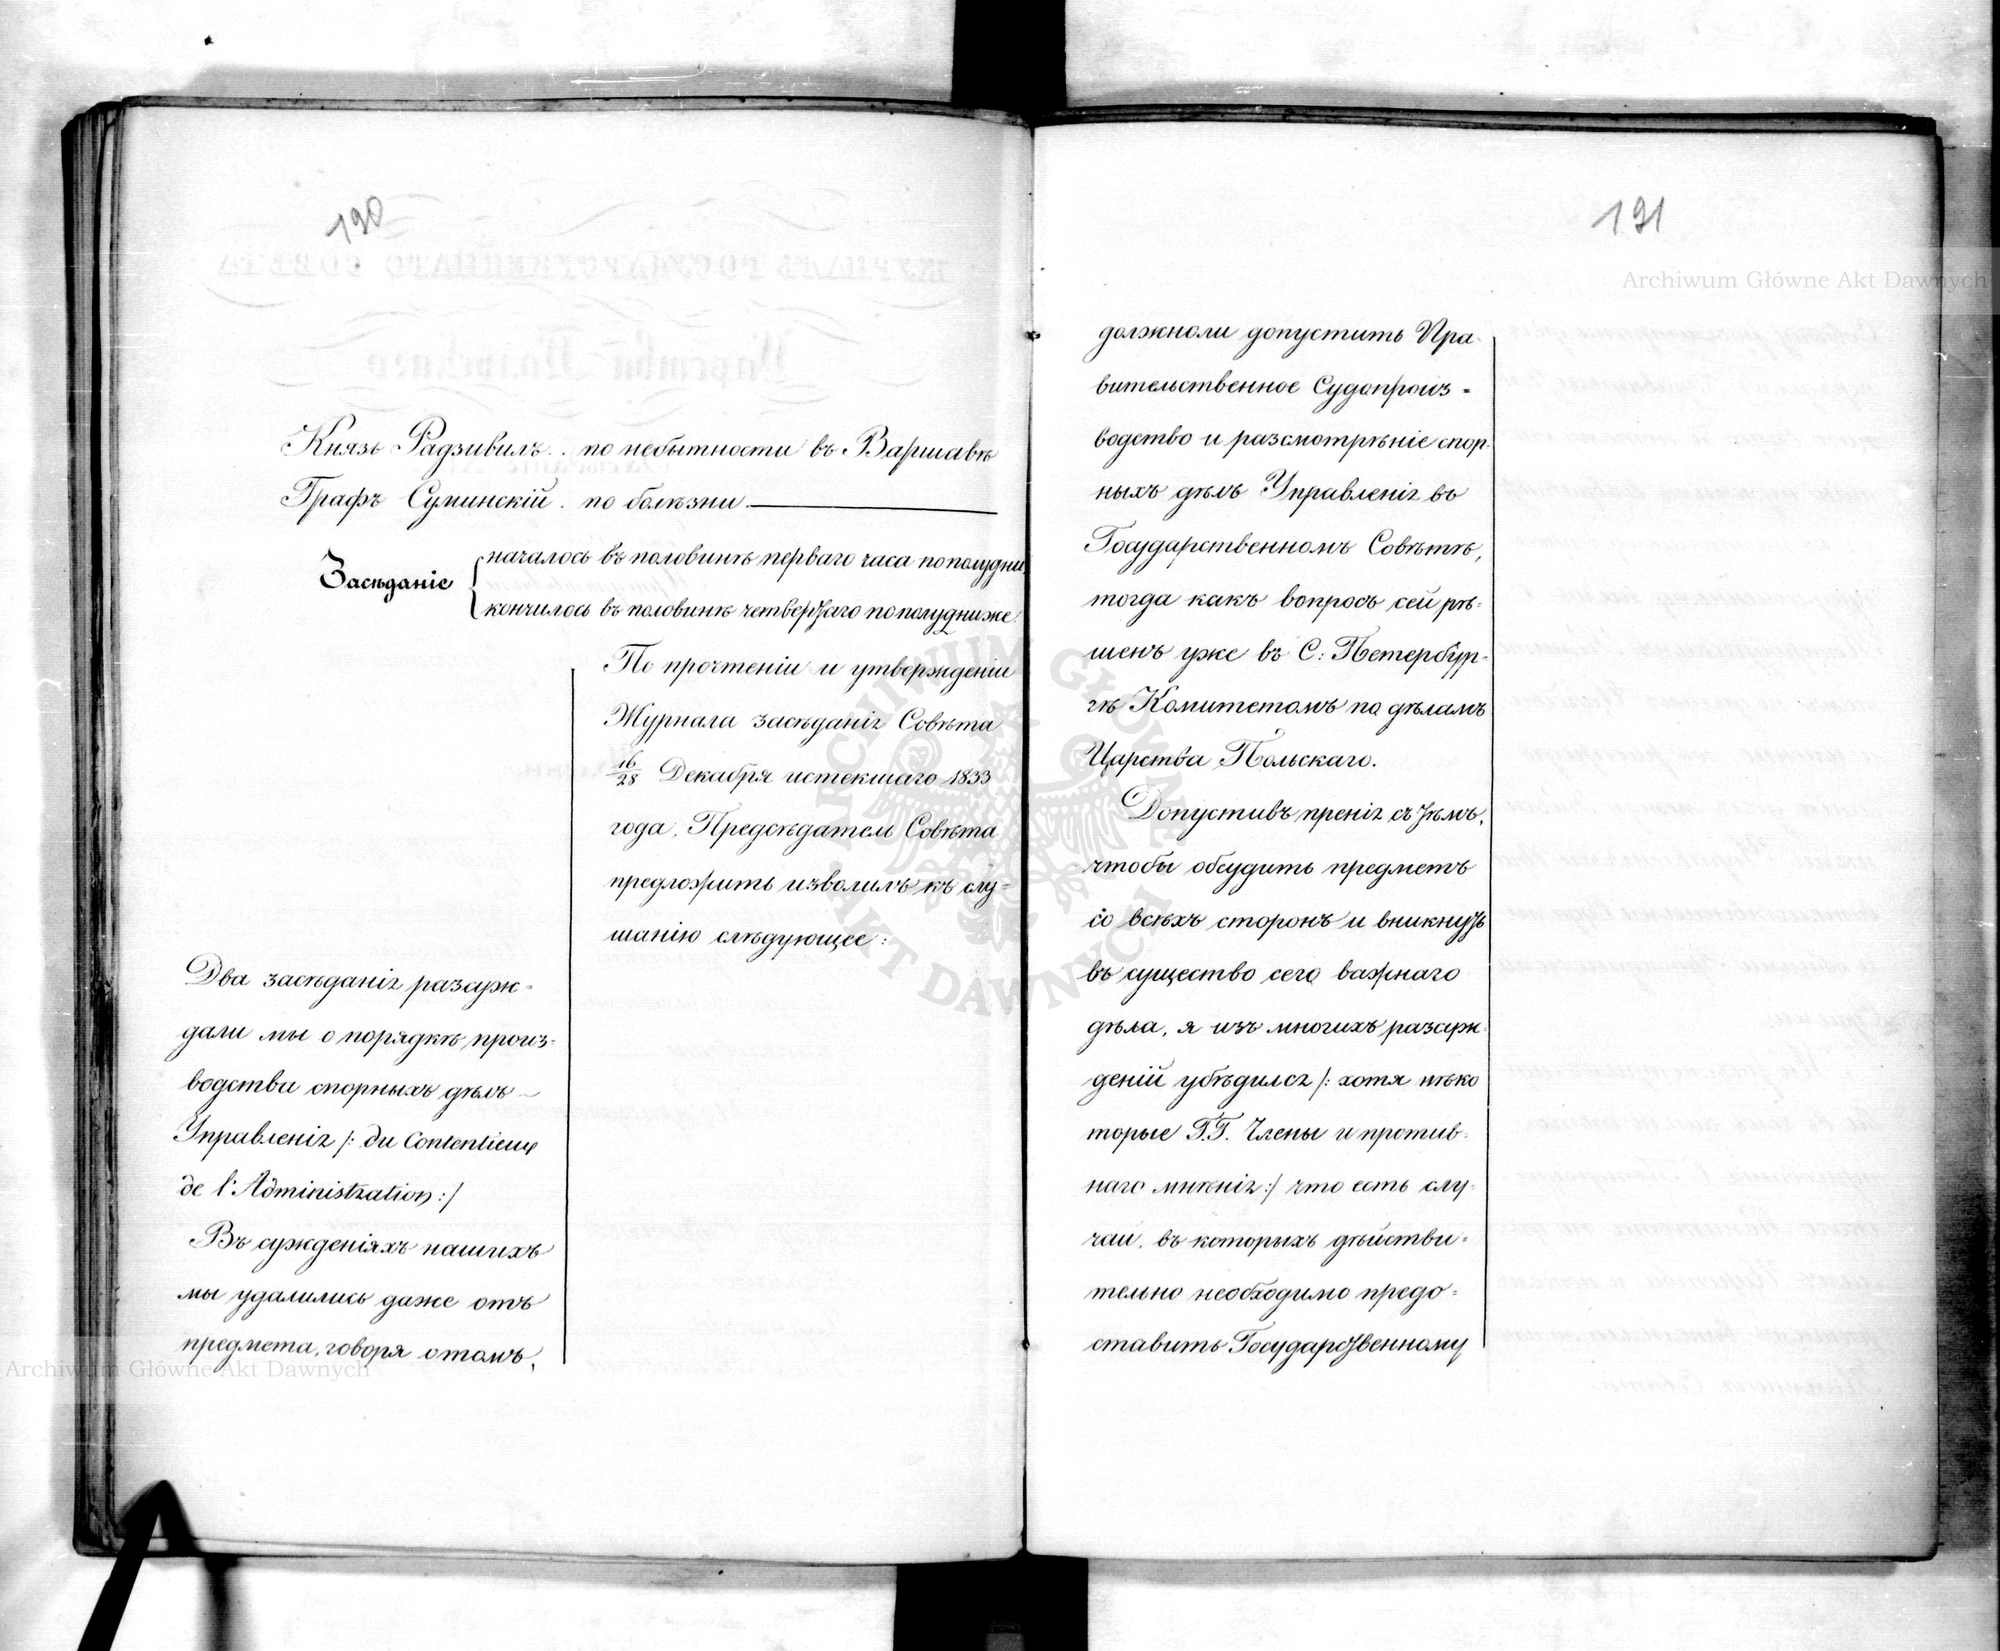 190
Князь Радзивилъ . по небытности въ Варшавѣ
Графъ Суминскій . по болѣзни.
Засѣданіе
началось въ половинѣ перваго часа по полудни,
кончилось въ половинѣ четвертаго по полудни же.
По прочтеніи и утвержденіи
Журнала засѣданія Совѣта
16/28 Декабря истекшаго 1833
года, Предсѣдатель Совѣта
предложить изволилъ къ слу=
шанію слѣдующее:
Два засѣданія разсуж=
дали мы о порядкѣ произ=
водства спорныхъ дѣлъ
Управленія /: du Contentieux
de l'Administration :/
Въ сужденіяхъ нашихъ
мы удалились даже отъ
предмета, говоря о томъ,
191
должноли допустить Пра=
вительственное Судопроиз=
водство и разсмотрѣніе спор=
ныхъ дѣлъ Управленія въ
Государственномъ Совѣтѣ,
тогда какъ вопросъ сей рѣ=
шенъ уже въ С: Петербур=
гѣ Комитетомъ по дѣламъ
Царства Польскаго.
Допустивъ пренія съ тѣмъ,
чтобы обсудить предметъ
со всѣхъ сторонъ и вникнуть
въ существо сего важнаго
дѣла, я изъ многихъ разсуж=
деній убѣдился /: хотя нѣко
торые Г.Г. Члены и против=
наго мнѣнія :/ что есть слу=
чаи, въ которыхъ дѣйстви=
тельно необходимо предо=
ставить Государственному
Archiwum Główne Akt Dawnych
Archiwum Główne Akt Dawnych
ARCHIWUM GŁÓWNE AKT DAWNYCH